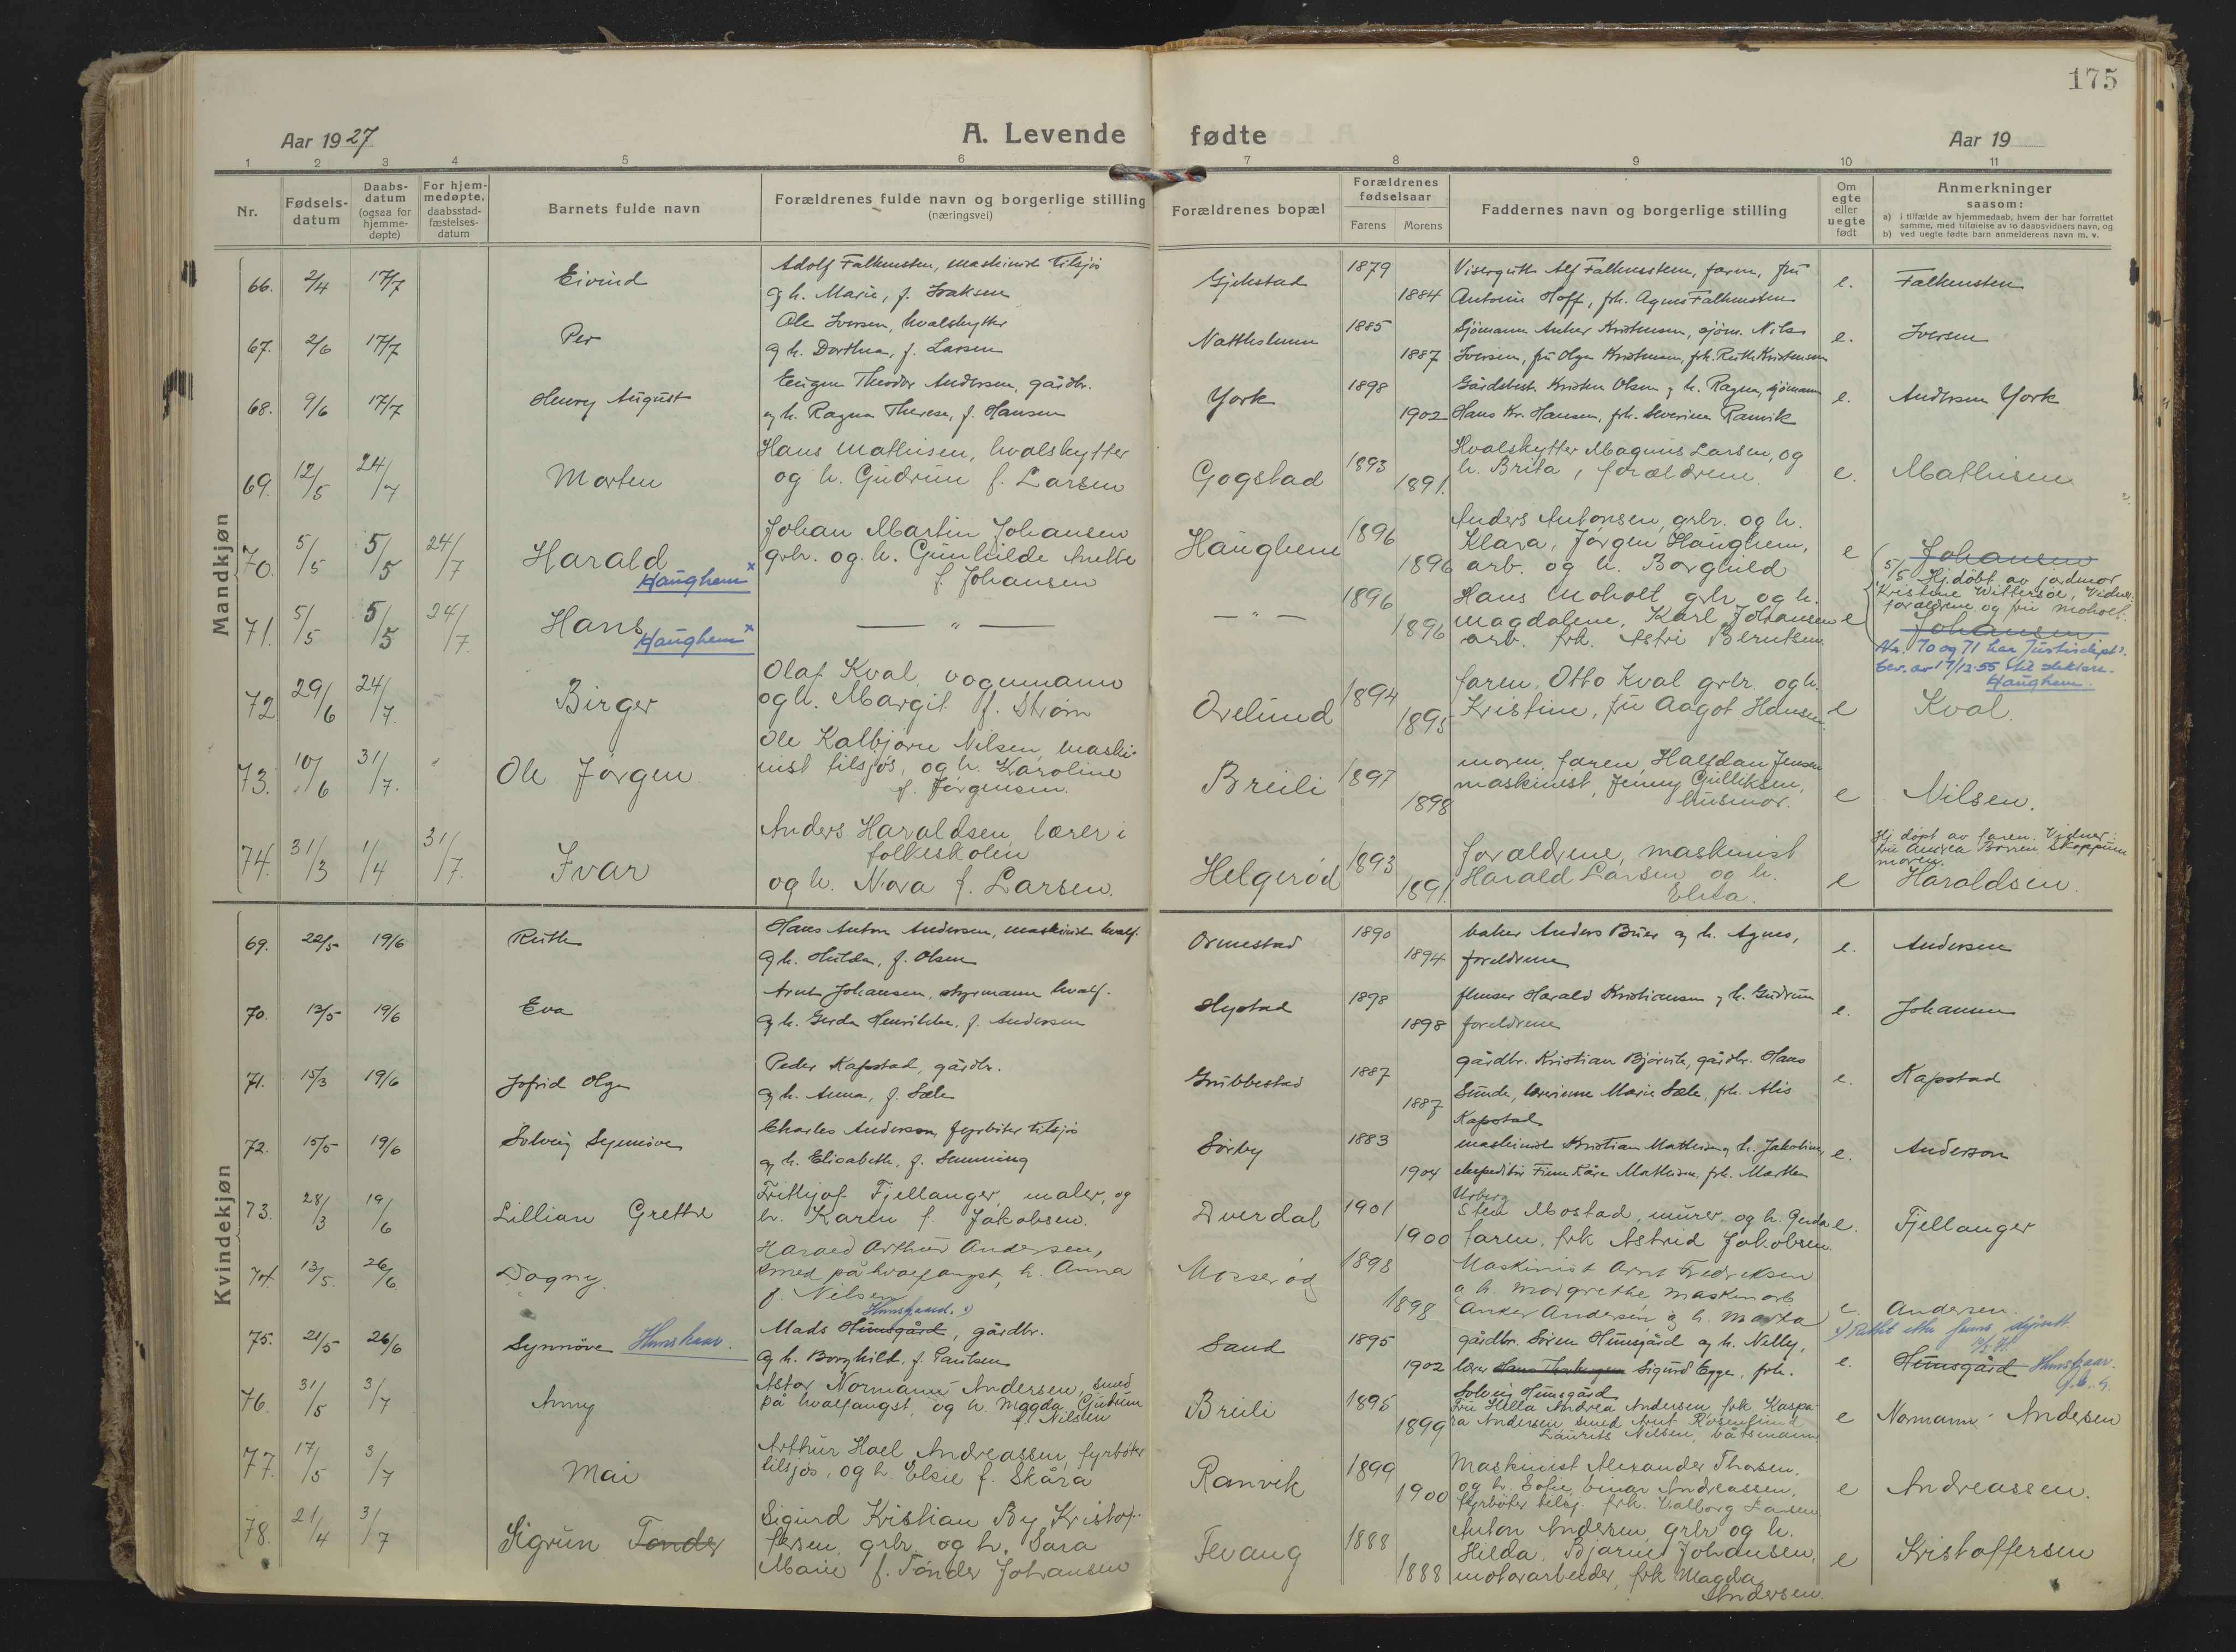 175
Aar 1927
A. Levende fødte
Aar 19
1 2 3 4 5 6 7 8 9 10 11
Nr.
Fødsels-
datum
Daabs-
datum
(ogsaa for
hjemme-
døpte)
For hjem-
medøpte,
daabsstad-
fæstelses-
datum
Barnets fulde navn
Forældrenes fulde navn og borgerlige stilling
(næringsvei)
Forældrenes bopæl
Forældrenes
fødselsaar
Farens Morens
Faddernes navn og borgerlige stilling
Om
egte
eller
uegte
født
Anmerkninger
saasom:
a) i tilfælde av hjemmedaab, hvem der har forrettet
samme, med tilføielse av to daabsvidners navn, og
b) ved uegte fødte barn anmelderens navn m. v.
Mandkjøn
66. 2/4 17/7 Eivind
Adolf Falkensten, maskinist tilsjøs
og h. Marie, f. Isaksen
Gjekstad 1879 1884
Visergutt Alf Falkensten, faren, fru
Antonie Hoff, frk. Agnes Falkensten
e. Falkensten
67. 2/6 17/7 Per
Ole Iversen, hvalskytter
og h. Dorthea, f. Larsen
Nattholmen 1885 1887
Sjømann Anker Kristensen, sjøm. Nils
Iversen, fru Olga Kristensen, frk. Ruth Kristensen
e. Iversen
68. 9/6 17/7 Henry August
Eugen Theodor Andersen, gårdbr.
og h. Ragna Therese, f. Hansen
York 1898 1902
Gårdsbest. Kristen Olsen og h. Ragna, sjømann
Hans Kr. Hansen, frk. Severine Ranvik
e. Andersen York
69. 12/5 24/7 Morten
Hans Mathisen, hvalskytter
og h. Gudrun f. Larsen
Gogstad 1893 1891.
Hvalskytter Magnus Larsen, og
h. Brita, forældrene.
e. Mathisen
70. 5/5 5/5 24/7 Harald
Haughem x
Johan Martin Johansen
grbr. og h. Gunhilde Anette
f. Johansen
Haughem 1896 1896
Anders Antonsen, grbr. og h.
Klara, Jørgen Haughem,
arb. og h. Borghild
e Johansen
5/5 Hj. døbt av jordmor
Kristine Wittersøe, Vidner:
forældrene og fru Moholt.
71. 5/5 5/5 24/7 Hans
Haughem x
— " —
— " — 1896 1896
Hans Moholt grbr og h.
Magdalene, Karl Johansen
arb. frk. Astri Berntsen.
e Johansen
Nr. 70 og 71 har Justisdept's.
bev. av 17/12-55 til slektsn.
Haughem.
72 29/6 24/7. Birger
Olaf Kval, vognmann
og h. Margit f. Strøm
Orelund 1894 1895
faren, Otto Kval grbr. og h.
Kristine, fru Aagot Hansen.
e Kval.
73. 10/6 31/7. Ole Jørgen.
Ole Kalbjørn Nilsen, maski-
nist tilsjøs, og h. Karoline
f. Jørgensen.
Breili 1897 1898
moren, faren, Halfdan Jensen
maskinist, Jenny Gulliksen,
husmor.
e Nilsen.
74. 31/3 1/4 31/7. Ivar
Anders Haraldsen lærer i
folkeskolen
og h. Nora f. Larsen.
Helgerød 1893 1891.
forældrene, maskinist
Harald Larsen og h.
Elida.
e Hj. døpt av faren. Vidner:
fru Andrea Borren Skoppum
moren.
Haraldsen.
Kvindekjøn
69. 22/5 19/6 Ruth
Hans Anton Andersen, maskinist hvalf.
og h. Hulda, f. Olsen
Ormestad 1890 1894
baker Anders Buer og h. Agnes,
foreldrene
e. Andersen
70. 13/5 19/6 Eva
Arnt Johansen, styrmann hvalf.
og h. Gerda Henrikke, f. Andersen
Hystad 1898 1898
flenser Harald Kristiansen og h. Gudrun
foreldrene
e. Johansen
71. 15/3 19/6 Jofrid Olga
Peder Kapstad, gårdbr.
og h. Anna, f. Sæle
Grubbestad 1887 1887
gårdbr. Kristian Bjørvik, gårdbr. Hans
Sunde, lærerinne Marie Sæle, frk. Alis
Kapstad
e. Kapstad
72. 15/5 19/6 Solveig Synnøve
Charles Anderson, fyrbøter tilsjøs
og h. Elisabeth, f. Senning
Sørby 1883 1904
maskinist Kristian Mathisen og h. Jakobine,
ekspeditør Finn Kåre Mathisen, frk. Marthea
Urberg
e. Anderson
73. 28/3 19/6 Lillian Grethe
Frithjof Fjellanger, maler, og
h. Karen f. Jakobsen.
Dverdal 1901 1900
Sten Mostad, murer, og h. Gerda
faren, frk Astrid Jakobsen.
e. Fjellanger
74. 13/5. 26/6. Dagny.
Harald Arthur Andersen,
smed på hvalfangst, h. Anna
f. Nilsen
Mosserød 1898 1898
Maskinist Arnt Fredriksen
og h. Margrethe maskinarb
Anker Andersen og h. Marta
e. Andersen.
75. 21/5 26/6 Synnøve Hunskaar.
Hunskaard. x)
Mads Hunsgård, gårdbr.
og h. Borghild, f. Paulsen
Sand 1895 1902
gårdbr. Søren Hunsgård og h. Nelly,
lærer Sigurd Egge, frk.
Solveig Hunsgård
e. Hunsgård Hunskaar.
76. 31/5 3/7 Anny
Astor Normann Andersen, smed
på hvalfangst, og h. Magda Gudrun
f. Nilsen
Breili 1895 1899
Fru Hilla Andrea Andersen, frk. Kaspa-
ra Andersen, smed Arnt Rosenlund
Laurits Nilsen, båtsmann.
e Normann-Andersen
77. 17/5 3/7 Mai
Arthur Hoel Andreassen, fyrbøter
tilsjøs, og h. Elsie f. Skåra
Ranvik 1899 1900
Maskinist Alexander Thorsen,
og h. Sofie, Einar Andreassen,
fyrbøter tilsj. frk. Valborg Larsen
e Andreassen.
78. 21/4 3/7 Sigrun Tønder
Sigurd Kristian By Kristof-
fersen, grbr. og h. Sara
Marie f. Tønder Johansen
Fevang 1888 1888
Anton Andersen, grbr og h.
Hilda, Bjarne Johansen,
motorarbeider, frk Magda
Andersen.
e Kristoffersen